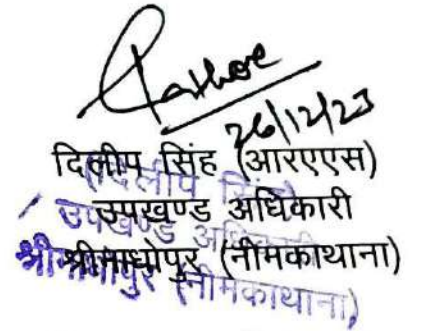 Rathore
26/12/23
दिलीप सिंह (आरएएस)
उपखण्ड अधिकारी
श्रीमाधोपुर (नीमकाथाना)
(दिलीप सिंह)
उपखण्ड अधिकारी
श्रीमाधोपुर (नीमकाथाना)